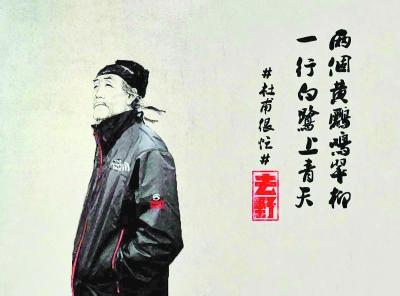 兩個黄鸝鳴翠柳
一行白鷺上青天
#杜甫很忙#